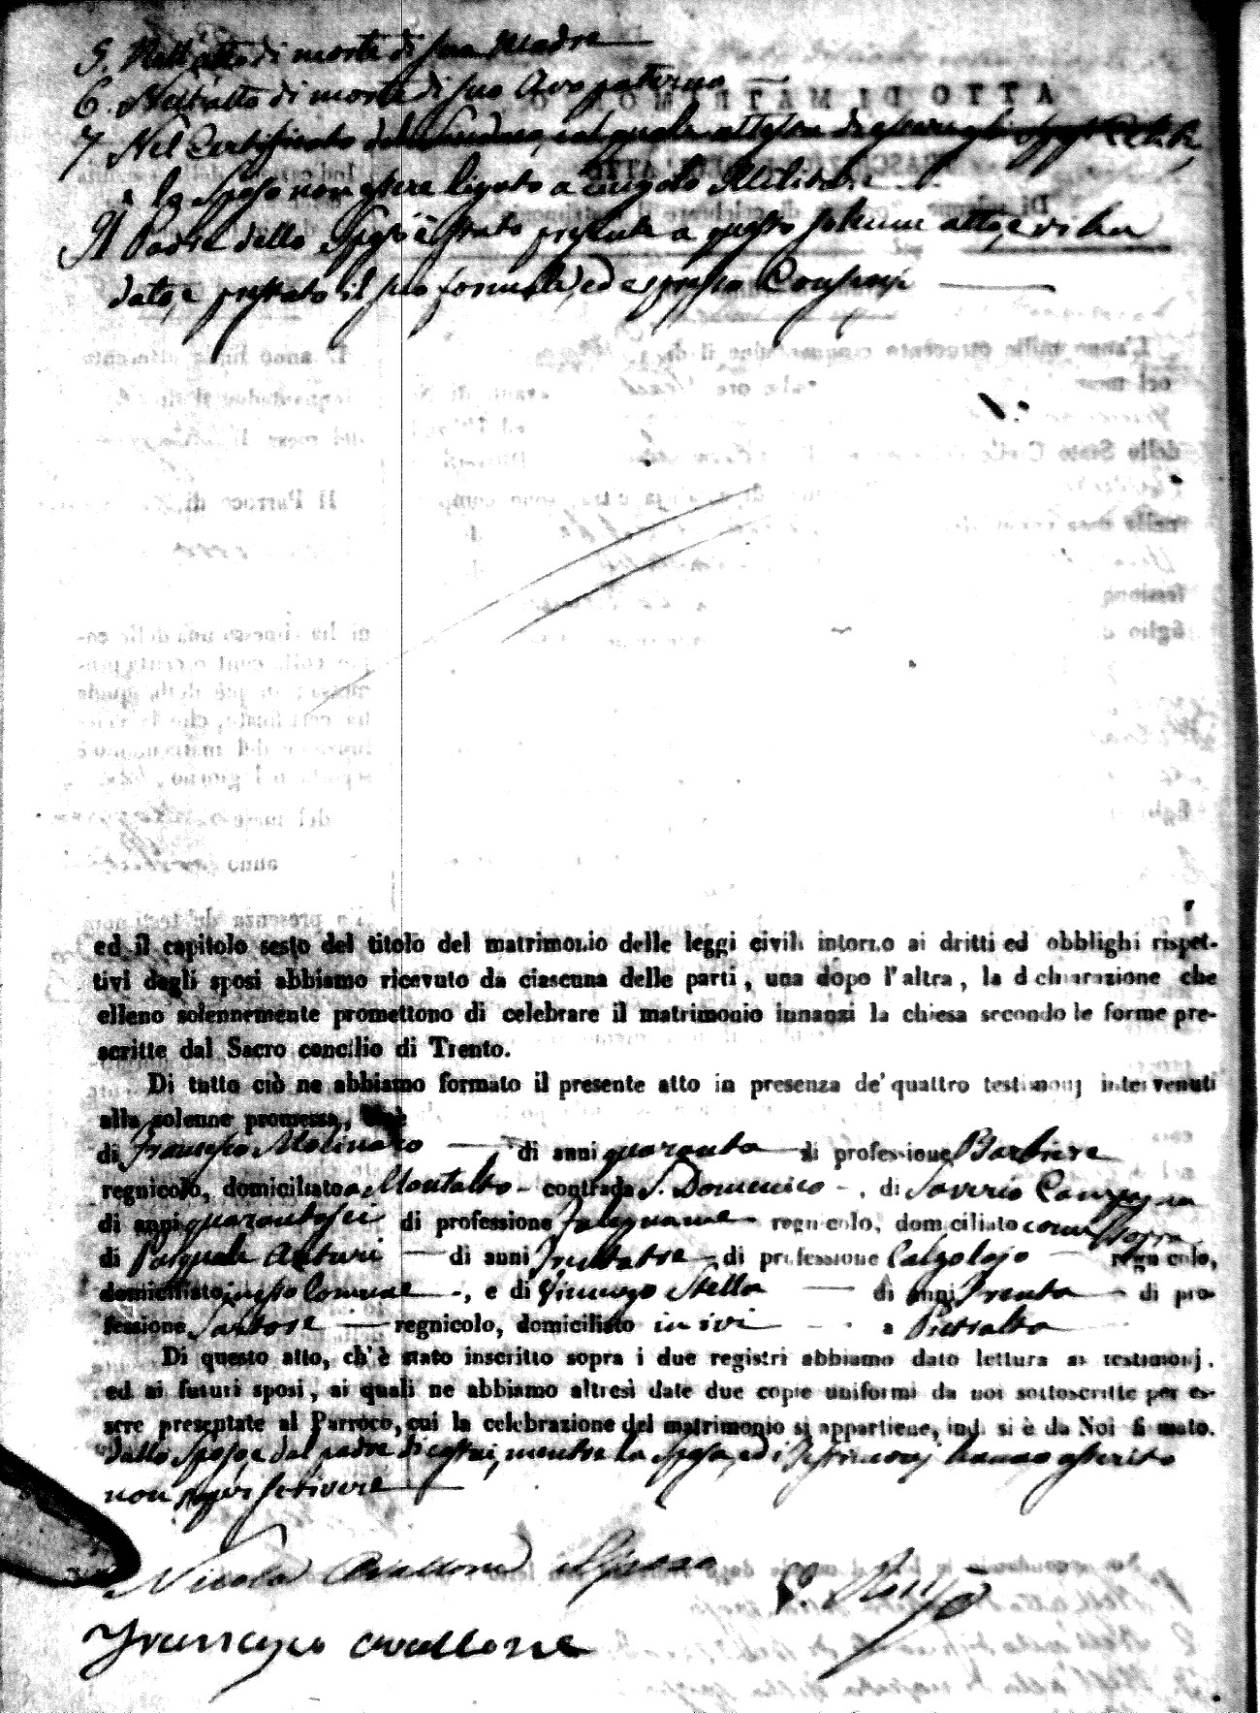 5. Nell'atto di morte di sua Madre
6. Nell'atto di morte di suo Avo paterno
7 Nel Certificato del Sindaco, col quale attesta di essere gli sposi Celibi,
e lo Sposo non essere ligato a cingolo Militare
Il Padre dello Sposo è stato presente a questo solenne atto, e vi ha
dato, e prestato il suo formale, ed espresso Consenso
ed il capitolo sesto del titolo del matrimonio delle leggi civili intorno ai dritti ed obblighi rispet-
tivi degli sposi abbiamo ricevuto da ciascuna delle parti, una dopo l'altra, la dichiarazione che
elleno solennemente promettono di celebrare il matrimonio innanzi la chiesa secondo le forme pre-
scritte dal Sacro concilio di Trento.
Di tutto ciò ne abbiamo formato il presente atto in presenza de' quattro testimonj intervenuti
alla solenne promessa,
di Francesco Molinaro di anni quaranta di professione Barbiere
regnicolo, domiciliato a Montalto contrada S. Domenico, di Saverio
di anni quarantasei di professione Falegname regnicolo, domiciliato come sopra
di Pasquale di anni trentatre di professione Calzolajo regnicolo,
domiciliato in esso Comune, e di Vincenzo Stella di anni trenta di pro-
fessione Sartore regnicolo, domiciliato in ivi a Pietralta
Di questo atto, ch'è stato inscritto sopra i due registri abbiamo dato lettura ai testimonj.
ed ai futuri sposi, ai quali ne abbiamo altresì date due copie uniformi da noi sottoscritte per es-
sere presentate al Parroco, cui la celebrazione del matrimonio si appartiene, ind. si è da Noi firmato.
dallo sposo, e dal padre di costui, mentre la sposa, ed i testimonj hanno asserito
non saper scrivere
Nicola Avallone Sposo
Francesco Avallone